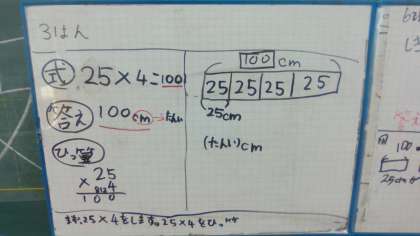 3はん
式 25×4=100
答え 100cm→たんい
ひっ算
25
×4
100
100cm
25 25 25 25
25cm
(たんい)cm
まず、25×4をします。25×4をひっ
答え
100
25cm